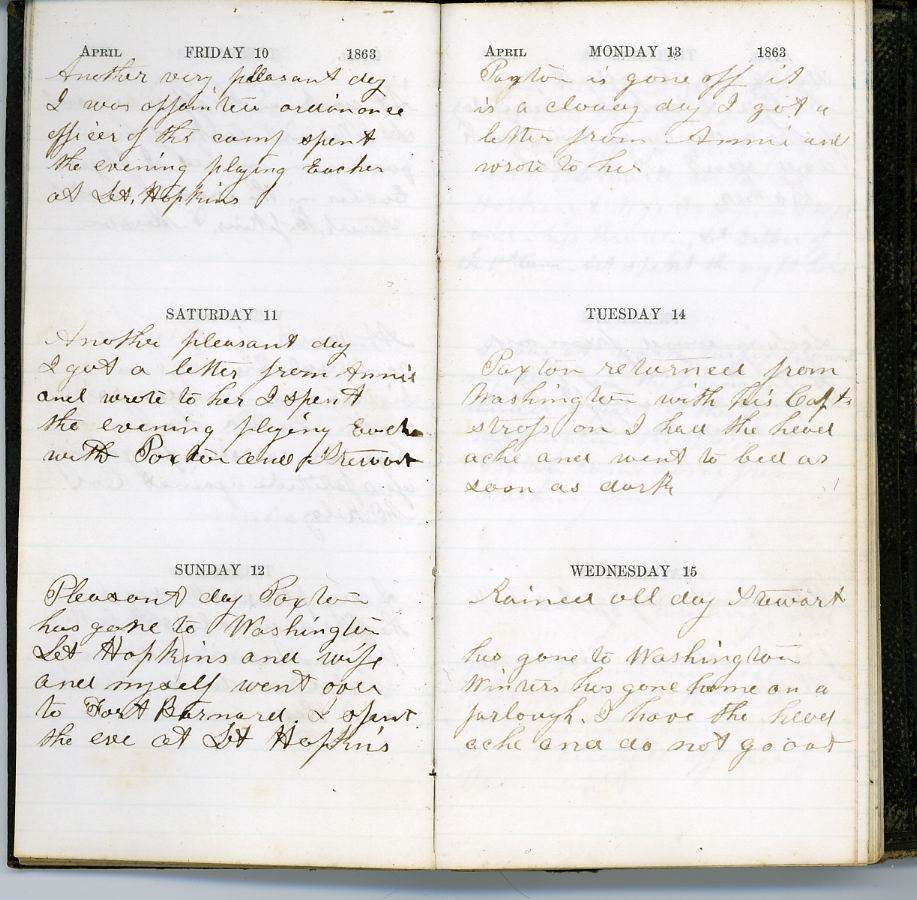 April FRIDAY 10 1863
Another very pleasant day
I was appointed ordinance
officer of this camp spent
the evening plying Eucher
at Lt. Hopkins
SATURDAY 11
Another pleasant day
I got a letter from Annie
and wrote to her I spent
the evening plying Euch
with Paxton and Stewart
SUNDAY 12
Pleasant day Paxton
has gone to Washington
Lt Hopkins and wife
and myself went over
to Fort Barnard. I spent
the eve at Lt Hopkins
April MONDAY 13 1863
Paxton is gone off it
is a cloudy day I got a
letter from Annie and
wrote to her
TUESDAY 14
Paxton returned from
Washington with his Capts
straps on I had the head
ache and went to bed as
soon as dark
WEDNESDAY 15
Rained all day Stewart
has gone to Washington
Winters has gone home on a
furlough. I have the head
ache and do not go out